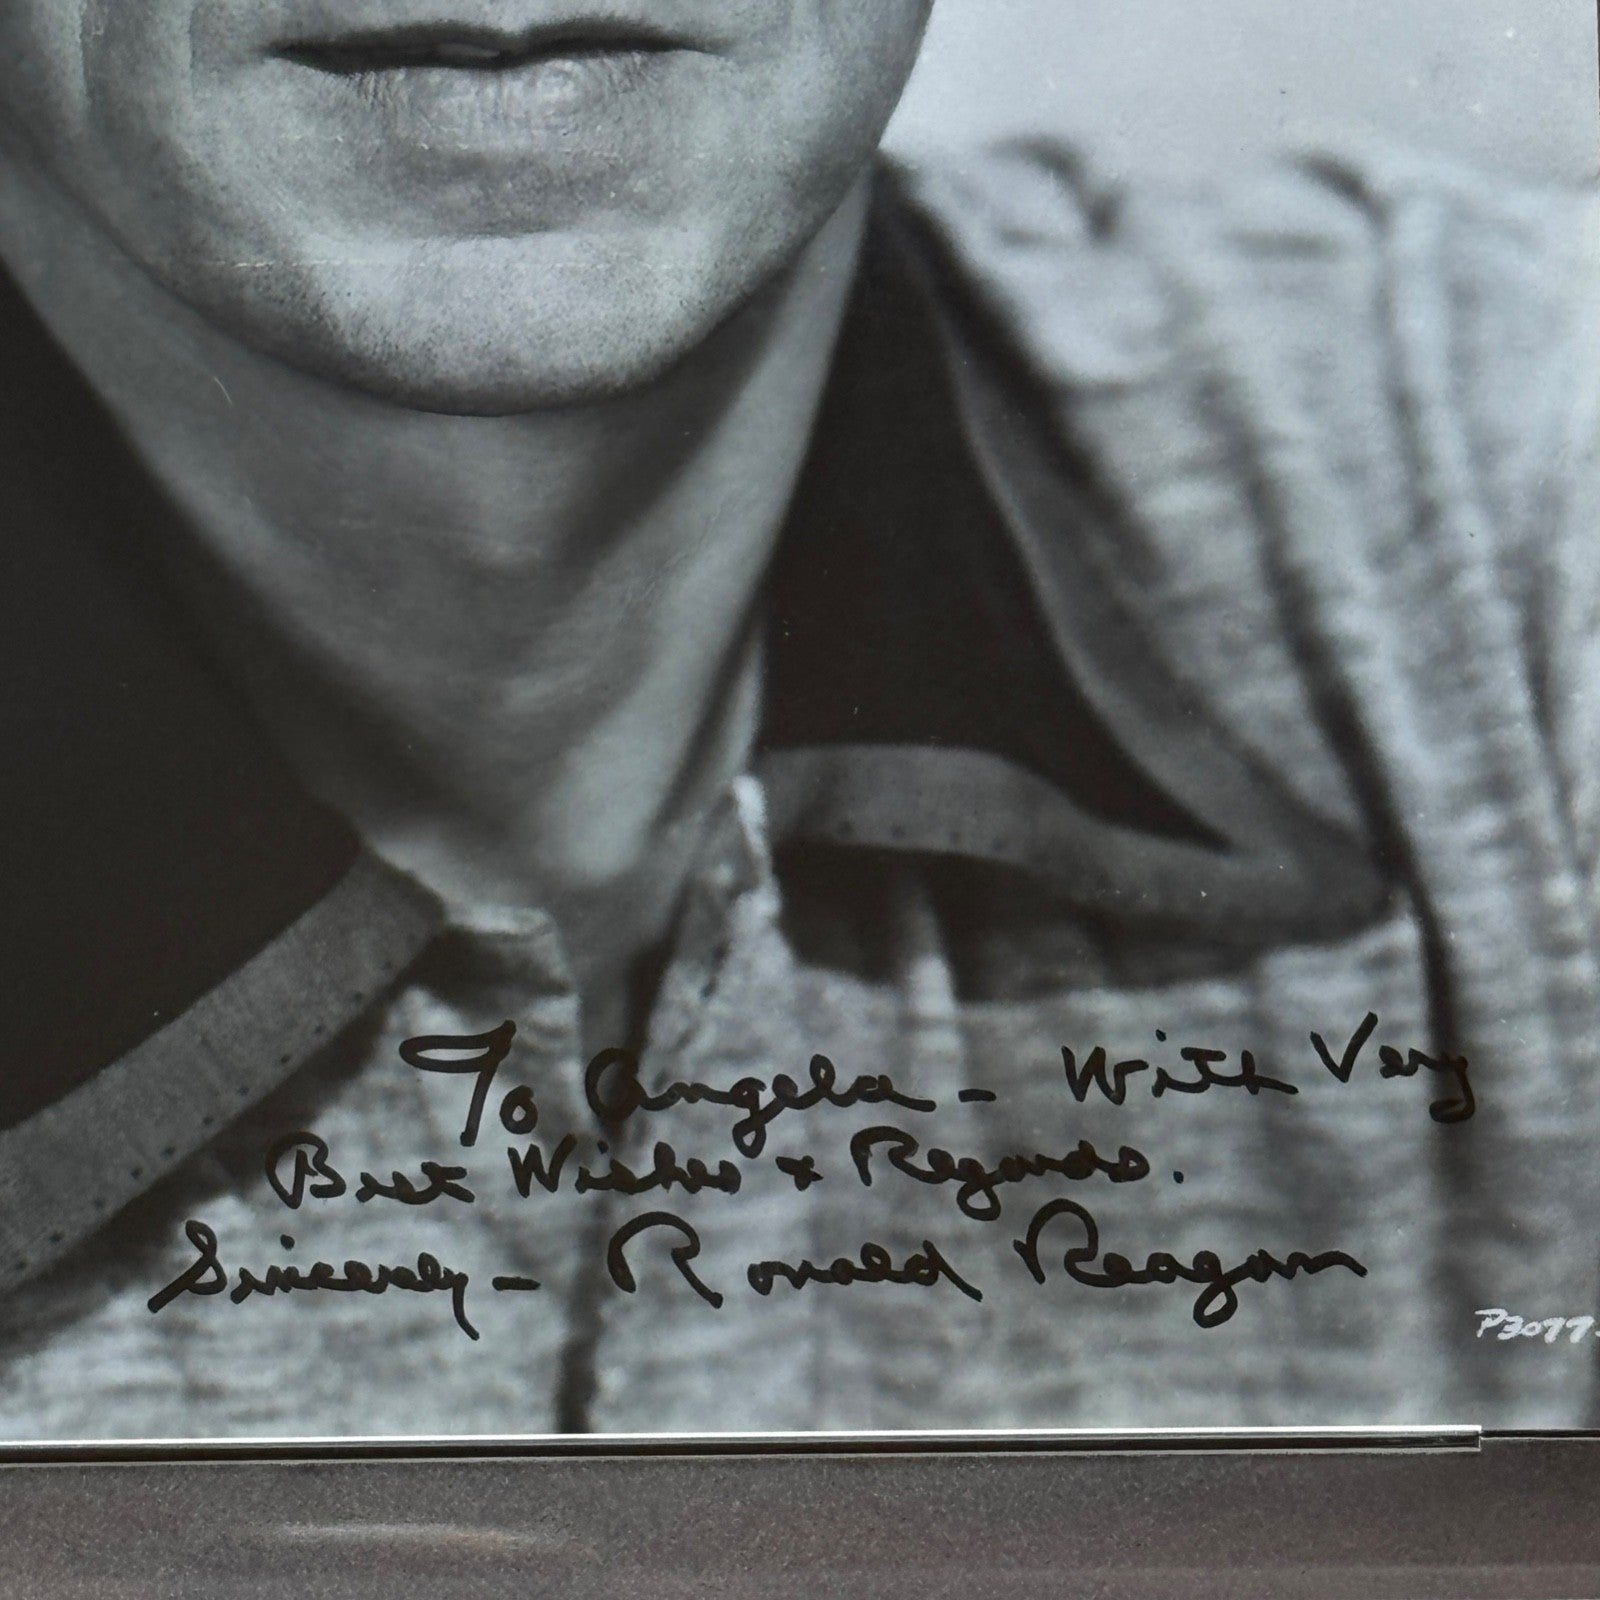 To Angela - With Very
Best Wishes & Regards.
Sincerely - Ronald Reagan
P3077-